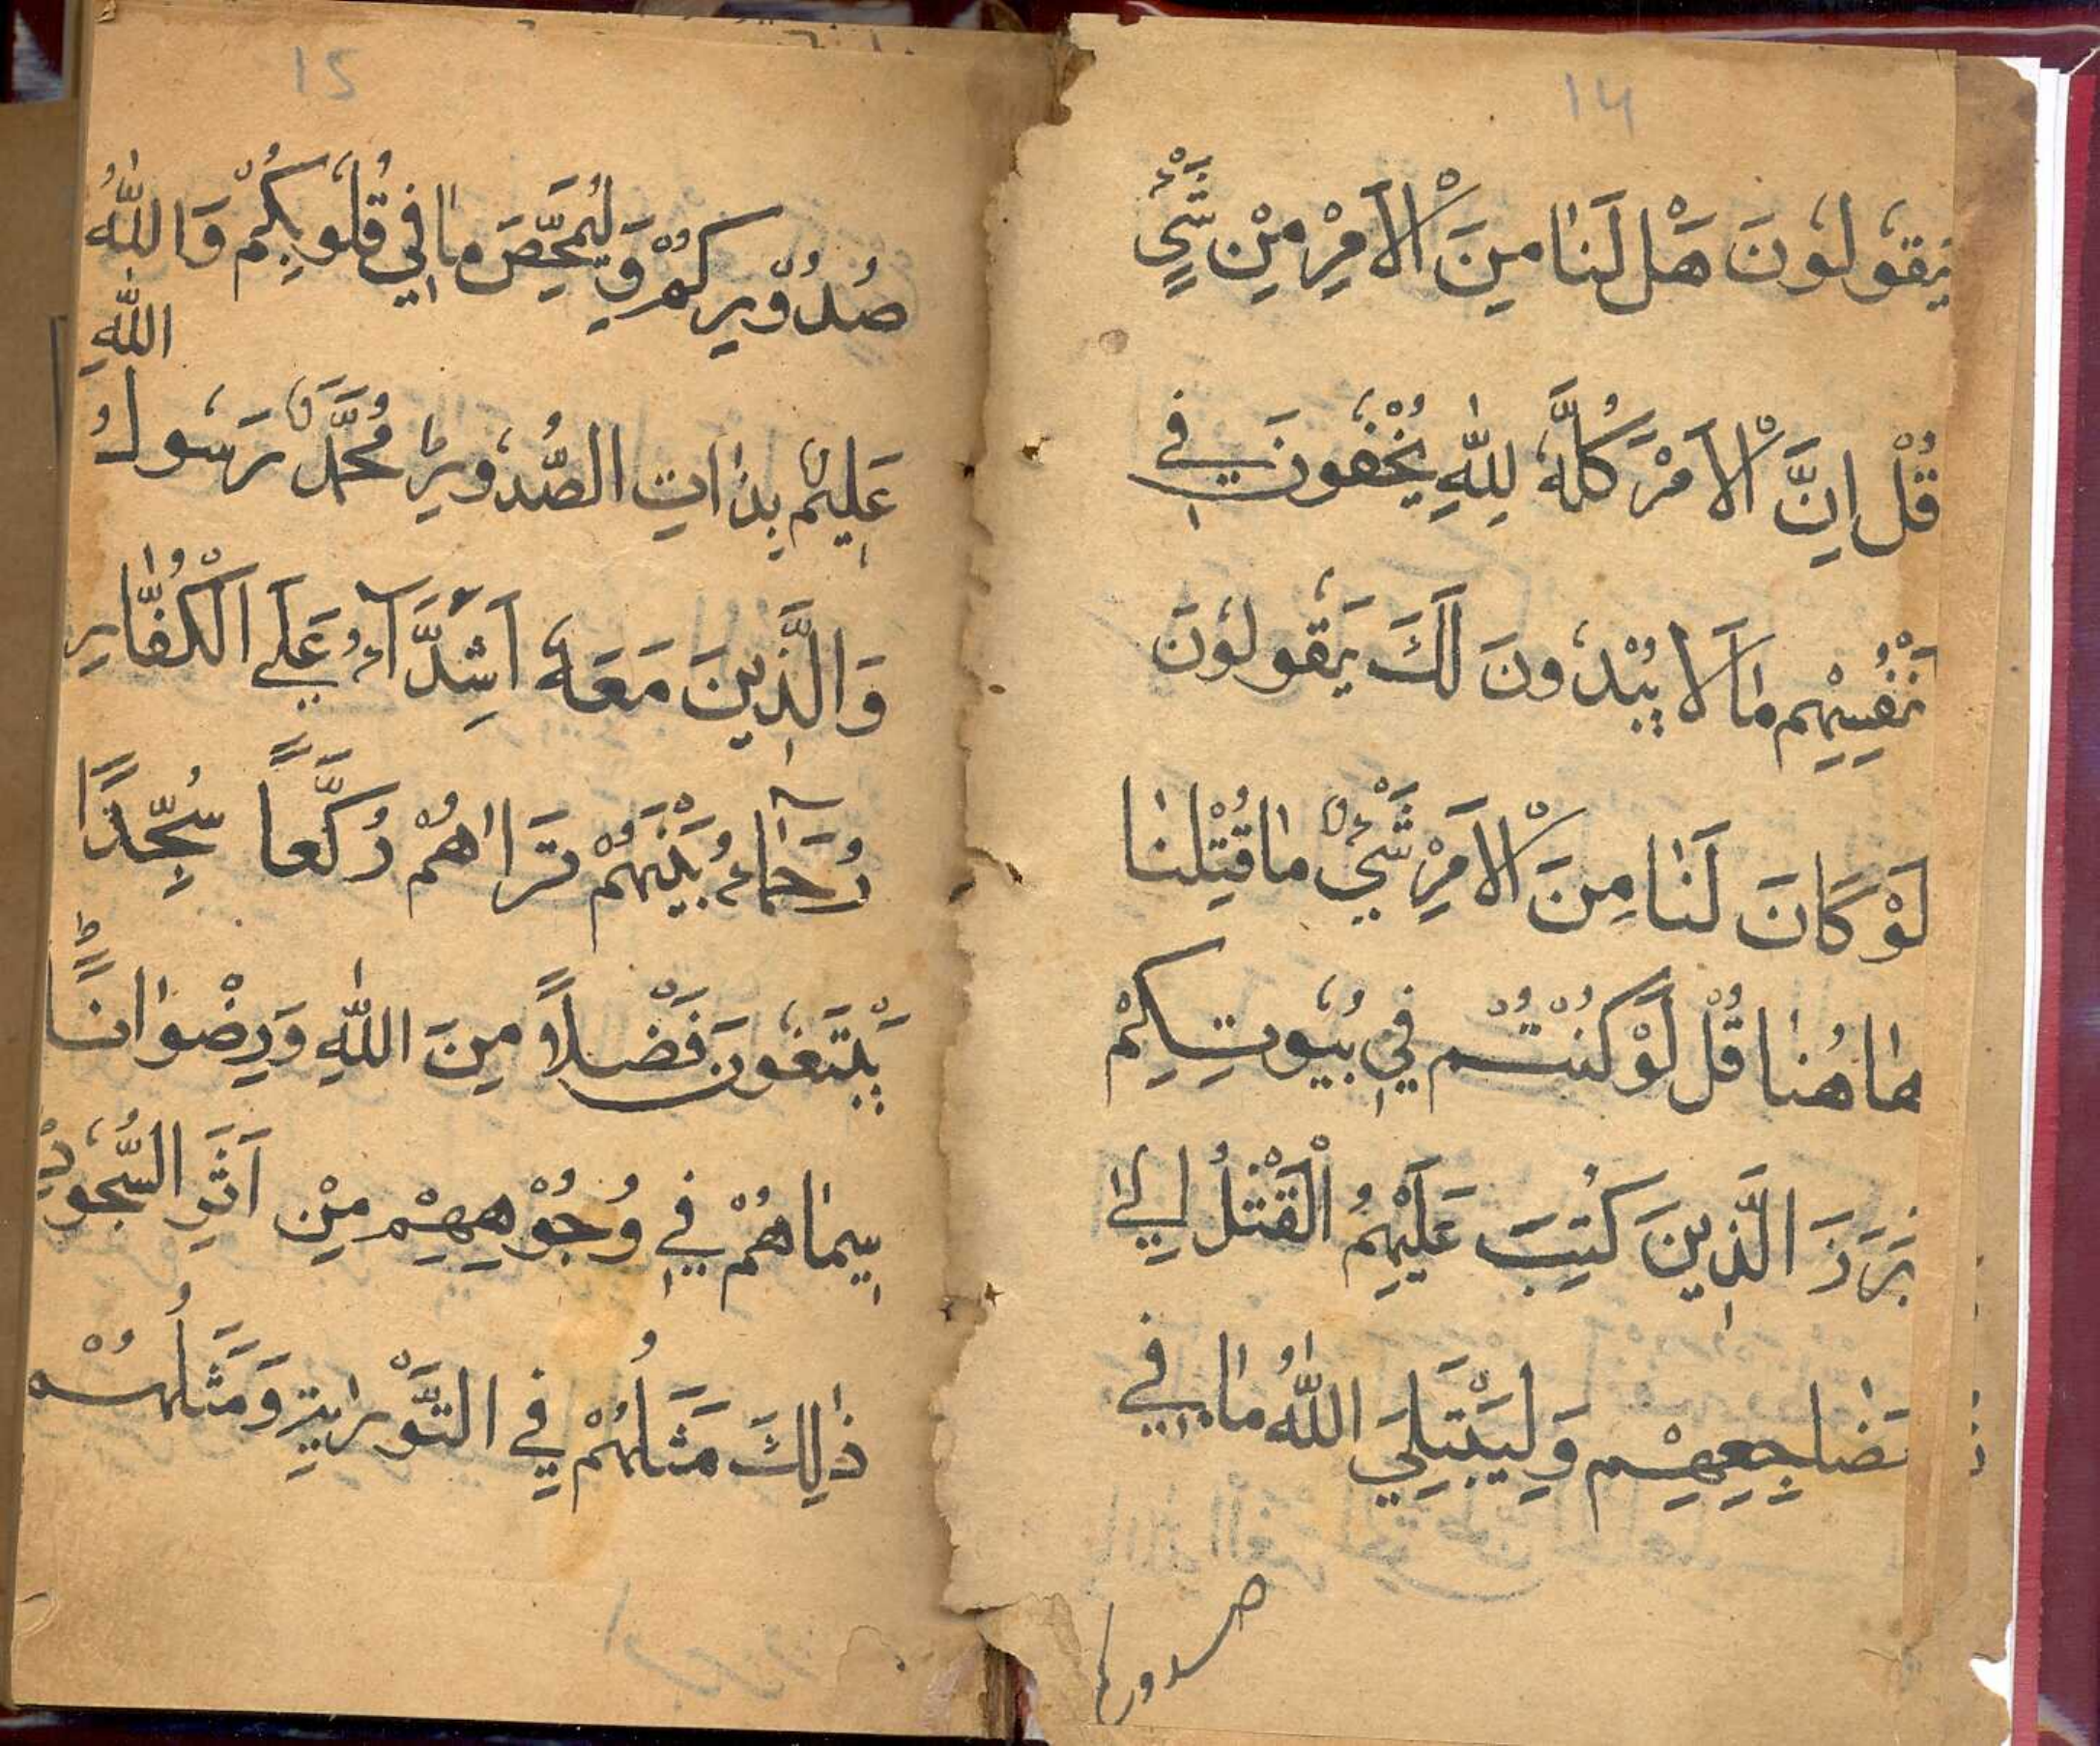 14
يَقُولُونَ هَلْ لَنَا مِنَ الْاَمْرِ مِنْ شَيْءٍ
قُلْ اِنَّ الْاَمْرَ كُلَّهُ لِلّٰهِ يُخْفُونَ فِي
نْفُسِهِمْ مَا لَا يُبْدُونَ لَكَ يَقُولُونَ
لَوْ كَانَ لَنَا مِنَ الْاَمْرِ شَيْءٌ مَا قُتِلْنَا
هَاهُنَا قُلْ لَوْ كُنْتُمْ فِي بُيُوتِكُمْ
بَرَزَ الَّذِينَ كُتِبَ عَلَيْهِمُ الْقَتْلُ اِلٰي
مَضَاجِعِهِمْ وَلِيَبْتَلِيَ اللّٰهُ مَا فِي
صدوركم
15
صُدُورِكُمْ وَلِيُمَحِّصَ مَا فِي قُلُوبِكُمْ وَاللّٰهُ
عَلِيمٌ بِذَاتِ الصُّدُورِ ط مُحَمَّدٌ رَسُولُ اللّٰهِ
وَالَّذِينَ مَعَهُ اَشِدَّآءُ عَلَي الْكُفَّارِ
رُحَمَآءُ بَيْنَهُمْ تَرَاهُمْ رُكَّعاً سُجَّدًا
يَبْتَغُونَ فَضْلاً مِنَ اللّٰهِ وَرِضْوَانًا ط
سِيمَاهُمْ فِي وُجُوْهِهِمْ مِنْ اَثَرِ السُّجُودِ
ذٰلِكَ مَثَلُهُمْ فِي التَّوْرٰيةِ وَمَثَلُهُمْ